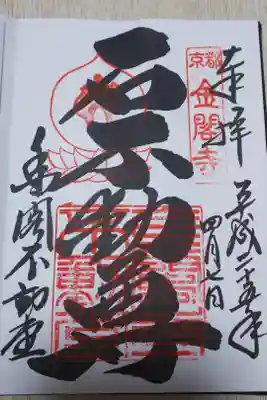 奉拝
京都
金閣寺
平成二十五年
四月
石不動尊
金閣不動堂